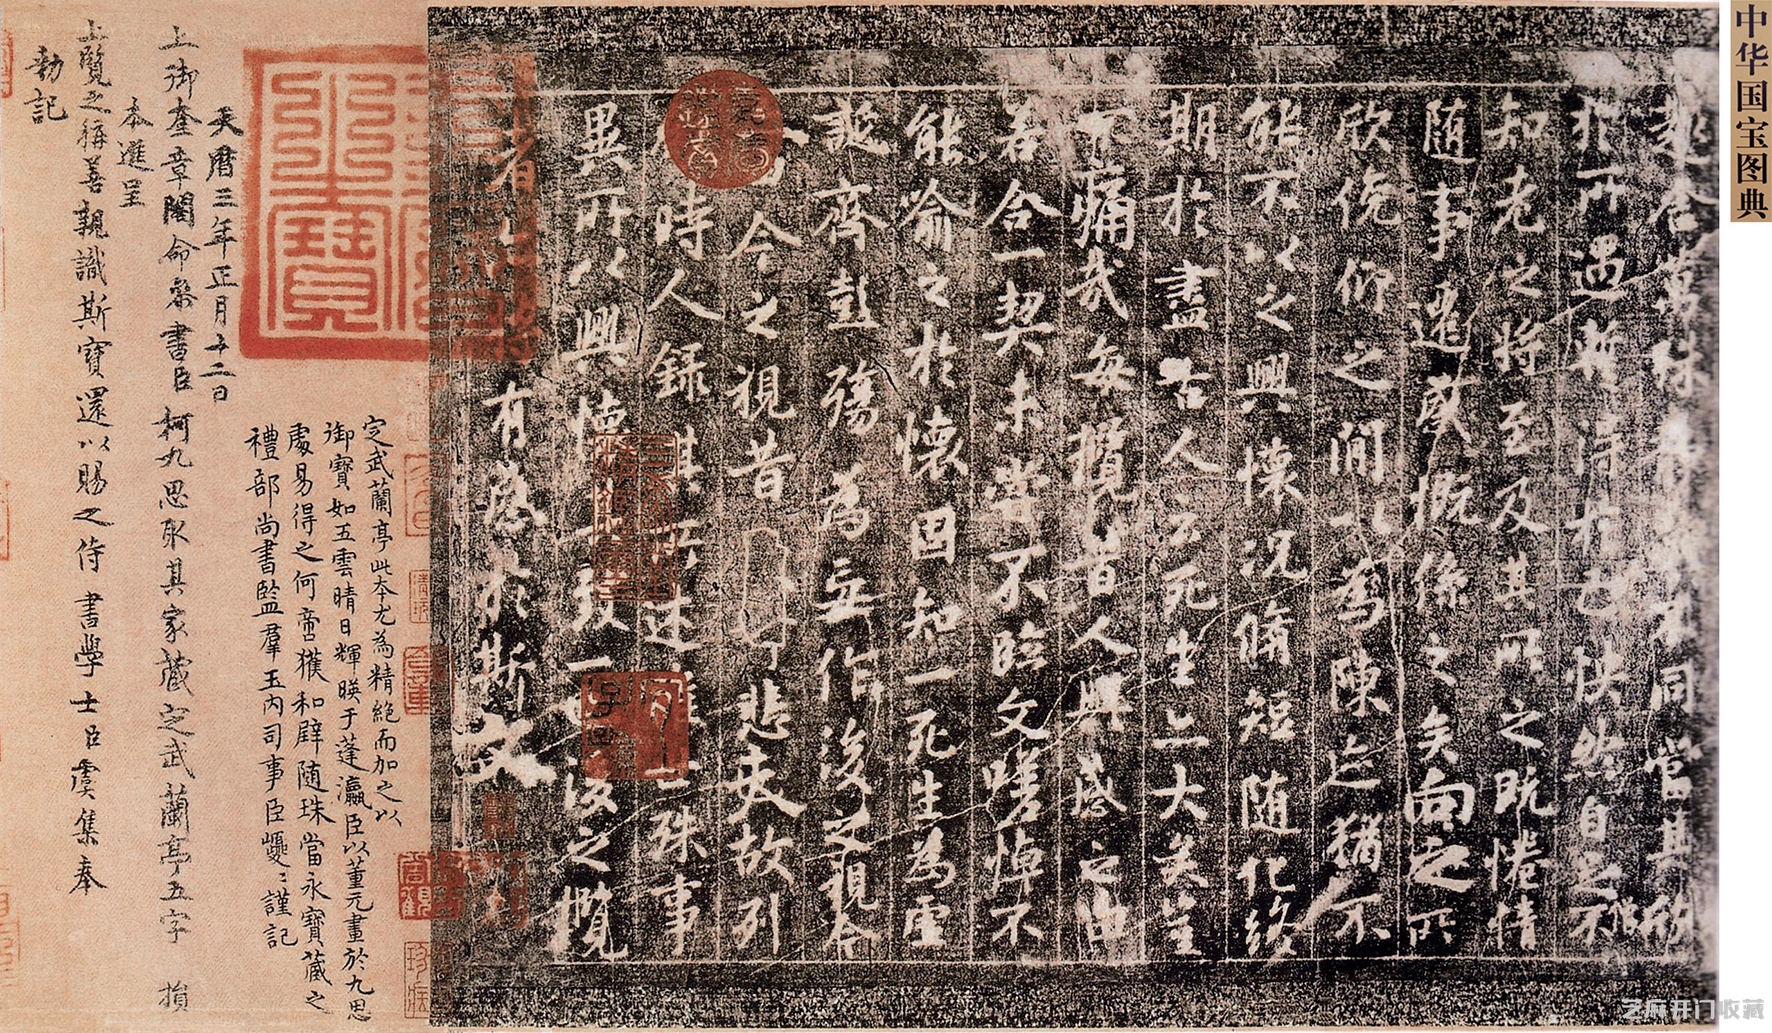 中华国宝图典
趣舍萬殊静躁不同當其欣
於所遇暫得於己快然自足不
知老之將至及其所之既惓情
随事遷感慨係之矣向之所
欣俛仰之閒以為陳迹猶不
能不以之興懷況脩短随化終
期於盡古人云死生亦大矣豈
不痛哉每攬昔人興感之由
若合一契未嘗不臨文嗟悼不
能喻之於懷固知一死生為虛
誕齊彭殤為妄作後之視今
今之視昔悲夫故列
時人錄其所述雖世殊事
異所以興懷其致一也後之攬
者亦將有感於斯文
定武蘭亭此本尤為精絶而加之以
御寶如五雲晴日輝暎于蓬瀛臣以董元畫於九思
處易得之何啻獲和璧随珠當永寶藏之
禮部尚書監羣玉內司事臣巙巙謹記
天曆三年正月十二日
上御奎章閣命參書臣柯九思取其家藏定武蘭亭五字損
本進呈
上覽之稱善親識斯寶還以賜之侍書學士臣虞集奉
勑記
芝麻开门收藏